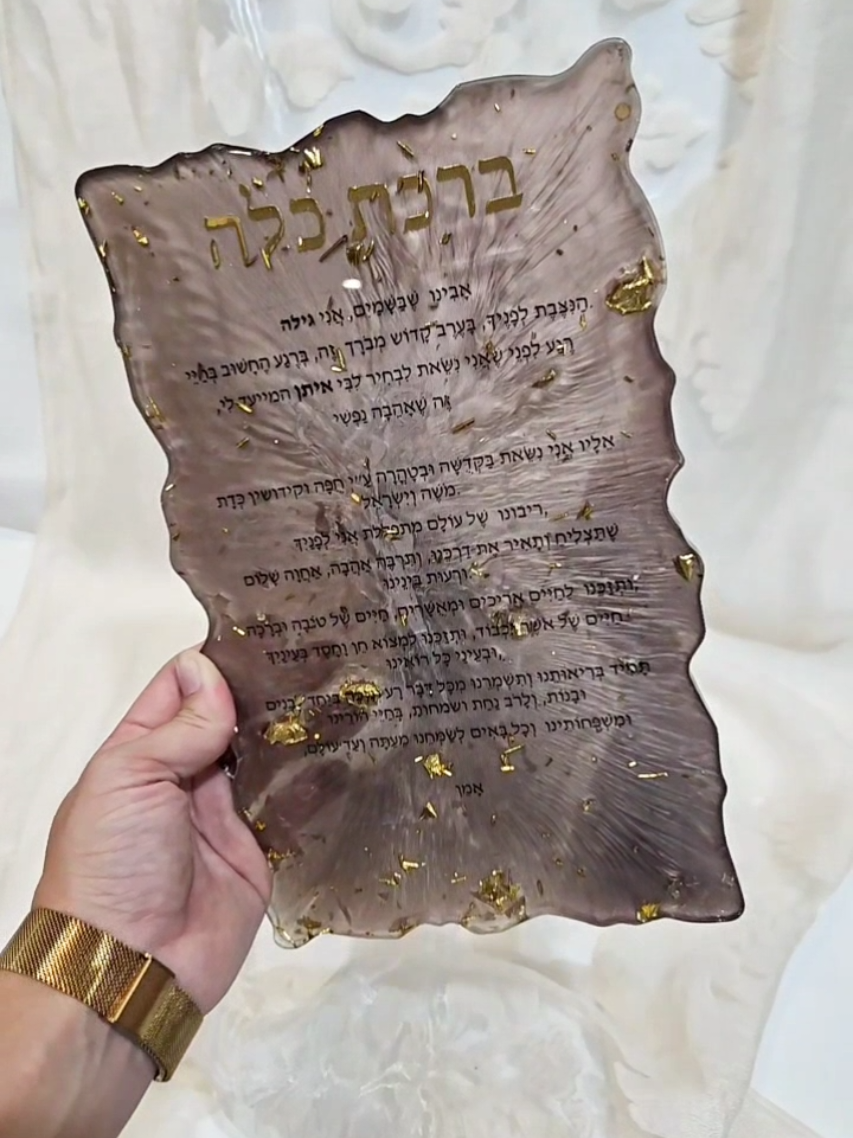 בִּרְכַּת כַּלָּה
אָבִינוּ שֶׁבַּשָּׁמַיִם, אֲנִי גילה
הַנִּצֶּבֶת לְפָנֶיךָ, בְּעֶרֶב קָדוֹשׁ מְבֹרָךְ זֶה, בָּרֶגַע הֶחָשׁוּב בְּחַיַּי.
רֶגַע לִפְנֵי שֶׁאֲנִי נִשֵּׂאת לִבְחִיר לִבִּי איתן המייועד לי,
זֶה שֶׁאָהֲבָה נַפְשִׁי
אֵלָיו אֲנִי נִשֵּׂאת בִּקְדֻשָּׁה וּבְטָהֳרָה ע"י חֻפָּה וקידושין כְּדָת
מֹשֶׁה וְיִשְׂרָאֵל.
רִיבּוֹנוֹ שֶׁל עוֹלָם מִתְפַּלֶּלֶת אֲנִי לְפָנֶיךָ,
שֶׁתַּצְלִיחַ וְתָאִיר אֶת דַּרְכֵּנוּ, וְתַרְבֶּה אַהֲבָה, אַחֲוָה שָׁלוֹם
וְרֵעוּת בֵּינֵינוּ.
וּתְזַכֵּנוּ לְחַיִּים אֲרִיכִים וּמְאֻשָּׁרִים, חַיִּים שֶׁל טוֹבָה וּבְרָכָה,
חַיִּים שֶׁל אֹשֶׁר וְכָבוֹד, וּתְזַכֵּנוּ לִמְצוֹא חֵן וָחֶסֶד בְּעֵינֶיךָ
וּבְעֵינֵי כָּל רוֹאֵינוּ,
תָּמִיד בְּרִיאוּתֵנוּ וְתִשְׁמְרֵנוּ מִכָּל דְּבַר רַע בְּיַחַד לְבָנִים
וּבָנוֹת, וְלָרֹב נַחַת וּשְׂמָחוֹת, בְּחַיֵּי הוֹרֵינוּ
וּמִשְׁפְּחוֹתֵינוּ וְכָל בָּאִים לְשַׂמְּחֵנוּ מֵעַתָּה וְעַד עוֹלָם,
אָמֵן